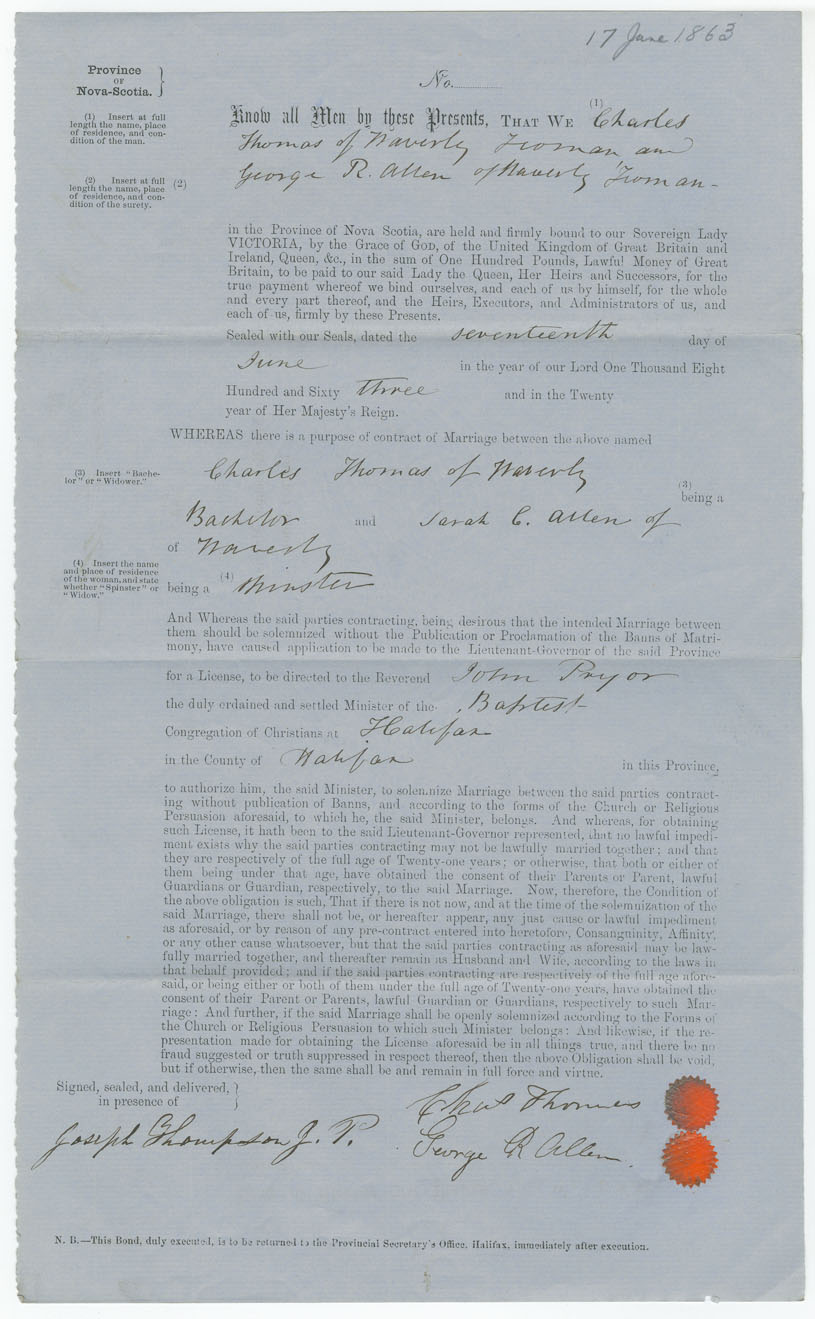 17 June 1863
Province
OF
Nova-Scotia.
No.
(1) Insert at full
length the name, place
of residence, and con-
dition of the man.
Know all Men by these Presents, THAT WE (1) Charles
Thomas of Waverly Yeoman and
(2) Insert at full
length the name, place
of residence, and con-
dition of the surety.
(2) George R. Allen of Waverly Yeoman -
in the Province of Nova Scotia, are held and firmly bound to our Sovereign Lady
VICTORIA, by the Grace of GOD, of the United Kingdom of Great Britain and
Ireland, Queen, &c., in the sum of One Hundred Pounds, Lawful Money of Great
Britain, to be paid to our said Lady the Queen, Her Heirs and Successors, for the
true payment whereof we bind ourselves, and each of us by himself, for the whole
and every part thereof, and the Heirs, Executors, and Administrators of us, and
each of us, firmly by these Presents.
Sealed with our Seals, dated the seventeenth day of
June in the year of our Lord One Thousand Eight
Hundred and Sixty three and in the Twenty
year of Her Majesty's Reign.
WHEREAS there is a purpose of contract of Marriage between the above named
(3) Insert "Bache-
lor" or "Widower."
Charles Thomas of Waverly
(3)
being a
Bachelor and Sarah C. Allen of
of Waverly
(4) Insert the name
and place of residence
of the woman, and state
whether "Spinster" or
"Widow."
being a (4) Spinster
And Whereas the said parties contracting, being desirous that the intended Marriage between
them should be solemnized without the Publication or Proclamation of the Banns of Matri-
mony, have caused application to be made to the Lieutenant-Governor of the said Province
for a License, to be directed to the Reverend John Pryor
the duly ordained and settled Minister of the Baptist
Congregation of Christians at Halifax
in the County of Halifax in this Province,
to authorize him, the said Minister, to solemnize Marriage between the said parties contract-
ing without publication of Banns, and according to the forms of the Church or Religious
Persuasion aforesaid, to which he, the said Minister, belongs. And whereas, for obtaining
such License, it hath been to the said Lieutenant-Governor represented, that no lawful impedi-
ment exists why the said parties contracting may not be lawfully married together; and that
they are respectively of the full age of Twenty-one years; or otherwise, that both or either of
them being under that age, have obtained the consent of their Parents or Parent, lawful
Guardians or Guardian, respectively, to the said Marriage. Now, therefore, the Condition of
the above obligation is such, That if there is not now, and at the time of the solemnization of the
said Marriage, there shall not be, or hereafter appear, any just cause or lawful impediment
as aforesaid, or by reason of any pre-contract entered into heretofore, Consanguinity, Affinity,
or any other cause whatsoever, but that the said parties contracting as aforesaid may be law-
fully married together, and thereafter remain as Husband and Wife, according to the laws in
that behalf provided; and if the said parties contracting are respectively of the full age afore-
said, or being either or both of them under the full age of Twenty-one years, have obtained the
consent of their Parent or Parents, lawful Guardian or Guardians, respectively to such Mar-
riage: And further, if the said Marriage shall be openly solemnized according to the Forms of
the Church or Religious Persuasion to which such Minister belongs: And likewise, if the re-
presentation made for obtaining the License aforesaid be in all things true, and there be no
fraud suggested or truth suppressed in respect thereof, then the above Obligation shall be void,
but if otherwise, then the same shall be and remain in full force and virtue.
Signed, sealed, and delivered,
in presence of
Chas Thomas
Joseph Thompson J. P.
George R Allen.
N. B.—This Bond, duly executed, is to be returned to the Provincial Secretary's Office, Halifax, immediately after execution.